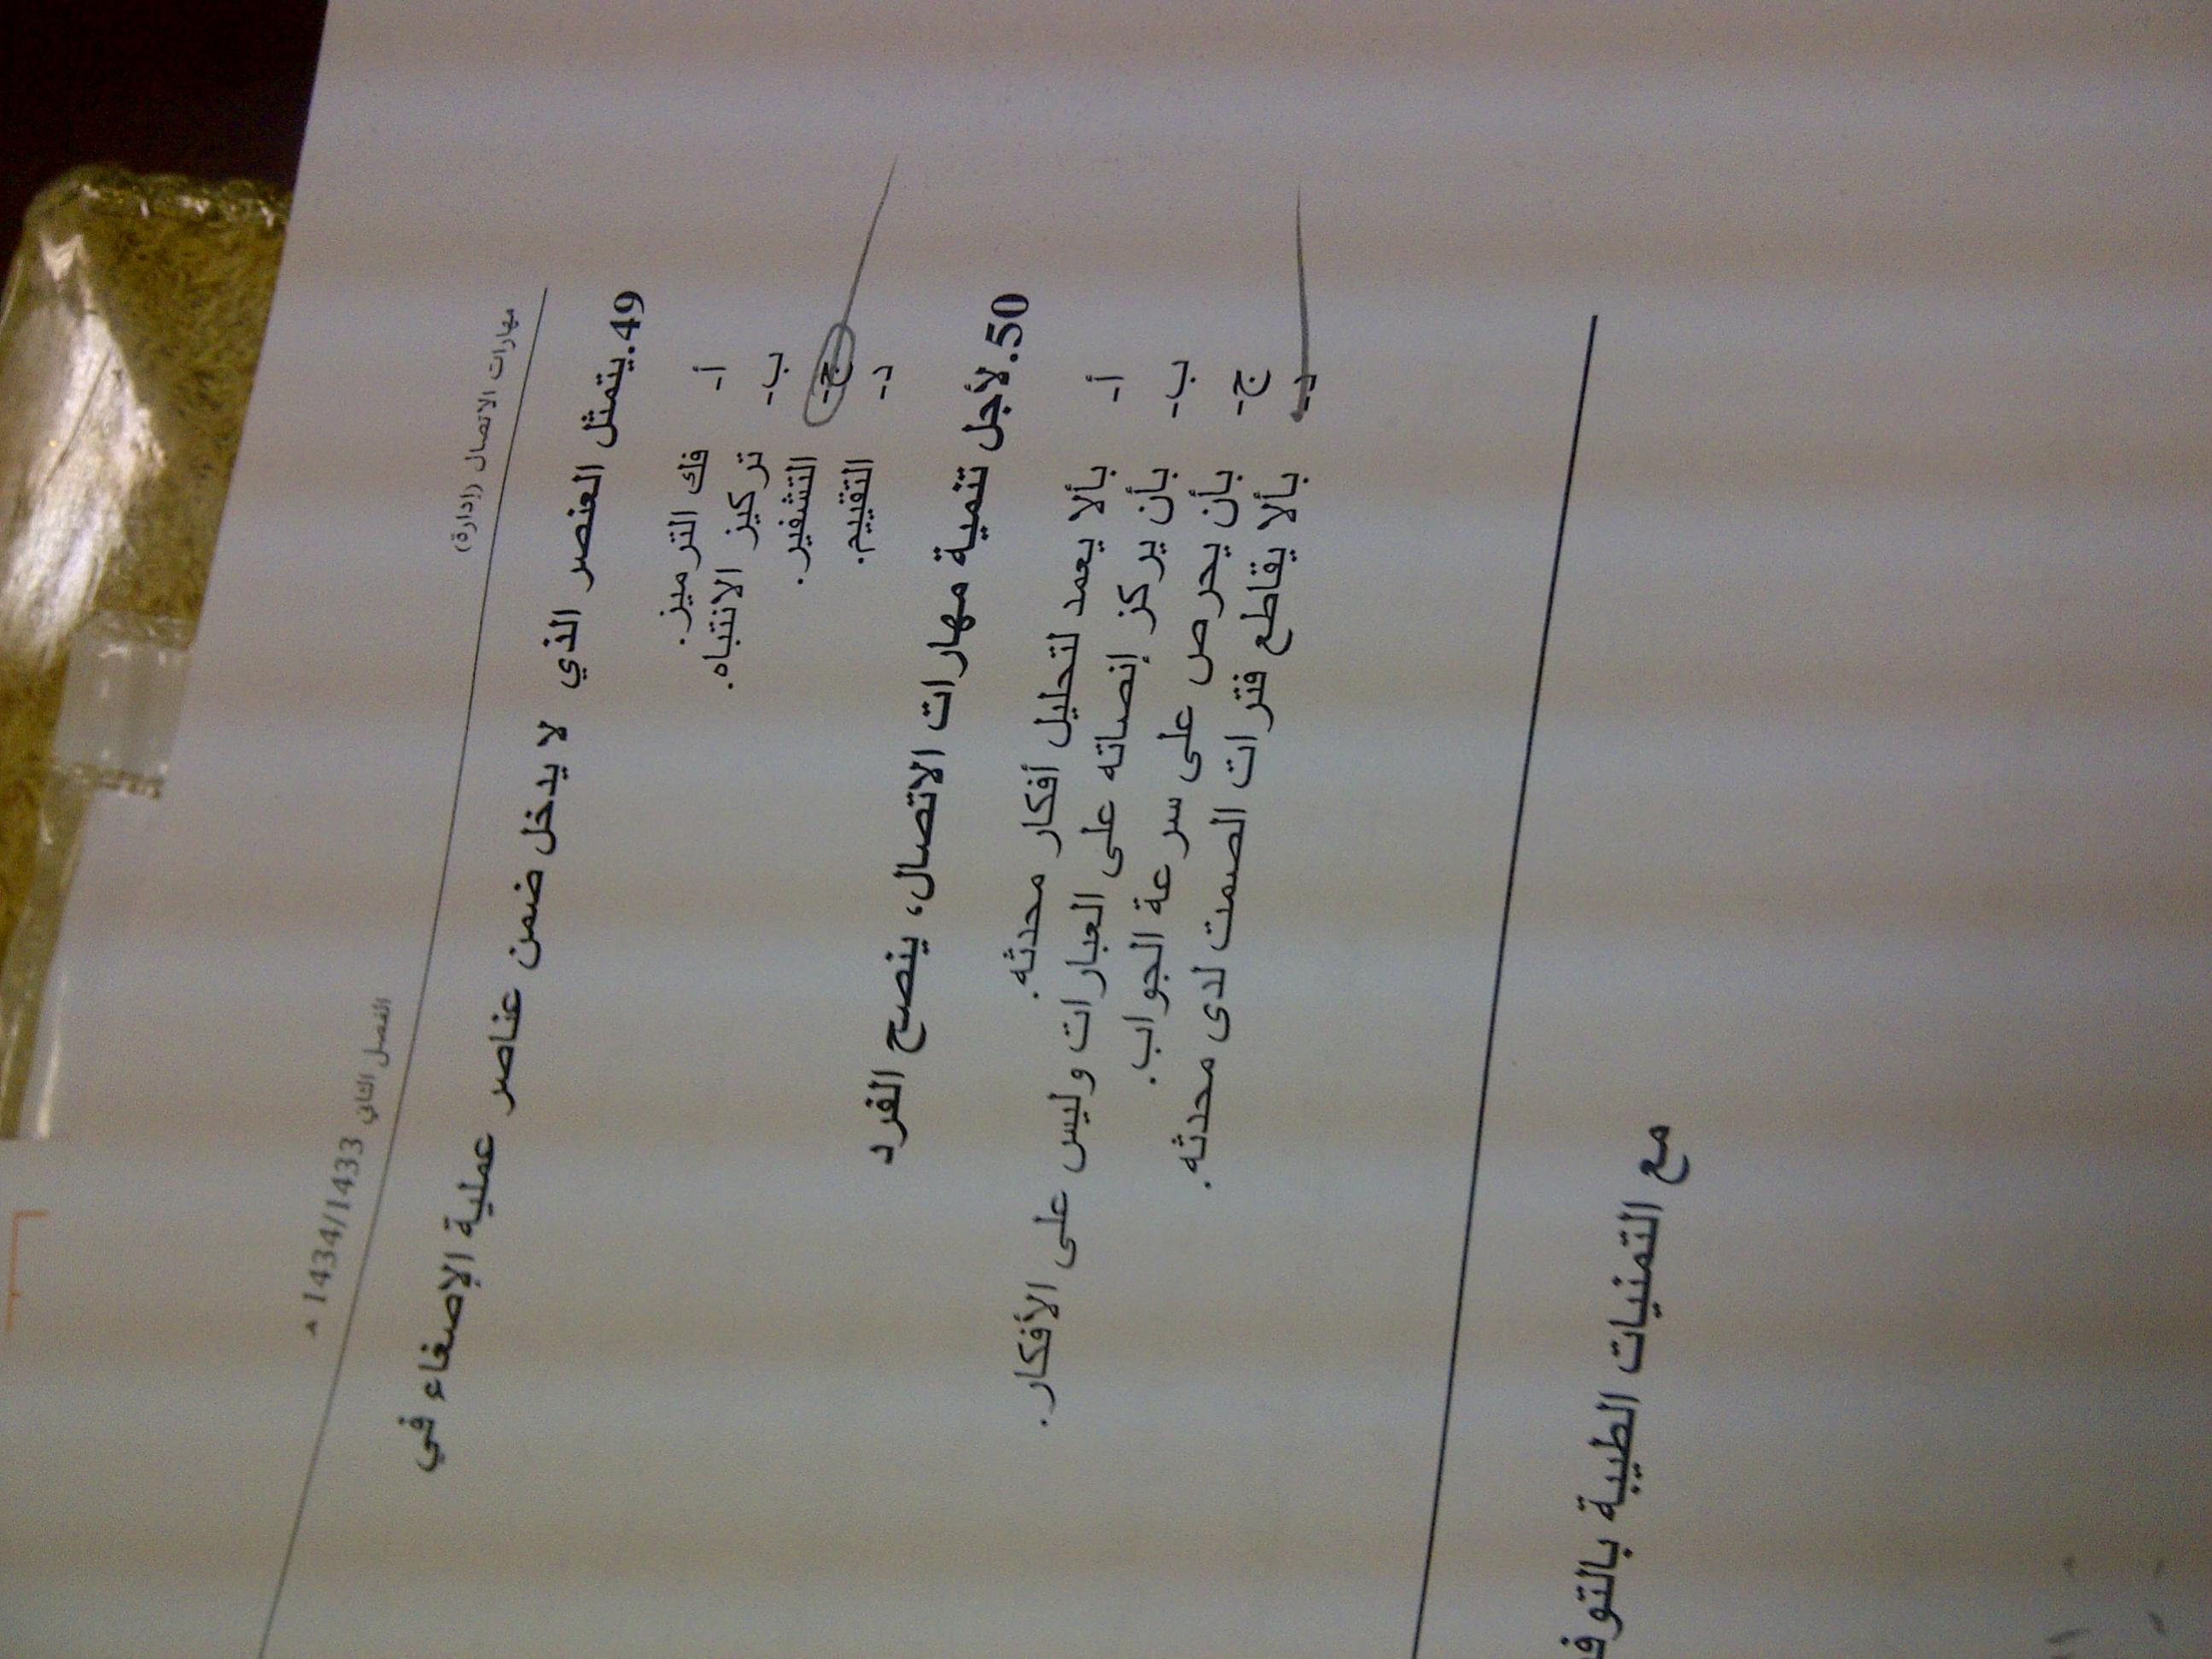 مهارات الاتصال (إدارة)
الفصل الثاني 1434/1433 هـ
49.يتمثل العنصر الذي لا يدخل ضمن عناصر عملية الإصغاء في
أ- فك الترميز.
ب- تركيز الانتباه.
ج- التشفير.
د- التقييم.
50.لأجل تنمية مهارات الاتصال، ينصح الفرد
أ- بألا يعمد لتحليل أفكار محدثه.
ب- بأن يركز إنصاته على العبارات وليس على الأفكار.
ج- بأن يحرص على سرعة الجواب.
د- بألا يقاطع فترات الصمت لدى محدثه.
مع التمنيات الطيبة